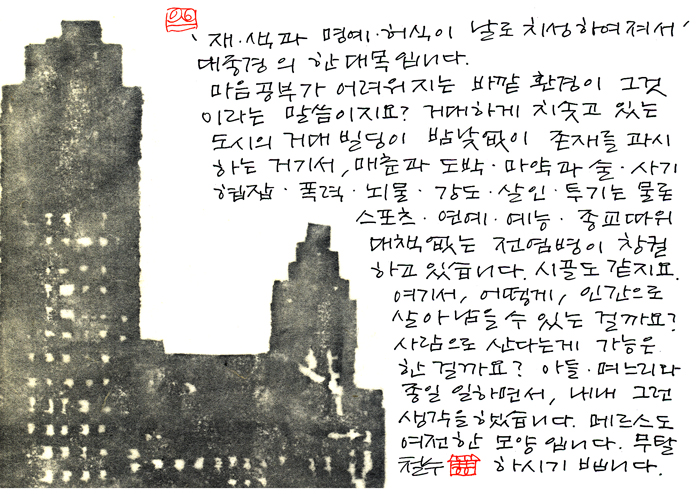 06
'재·색과 명예·허식이 날로 치성하여져서'
대종경의 한 대목입니다.
마음공부가 어려워지는 바깥 환경이 그것
이라는 말씀이지요? 거대하게 치솟고 있는
도시의 거대 빌딩이 밤낮없이 존재를 과시
하는 거기서, 매춘과 도박·마약과 술·사기
협잡·폭력·뇌물·강도·살인·투기는 물론
스포츠·연예·예능·종교따위
대책없는 전염병이 창궐
하고 있습니다. 시골도 같지요.
여기서, 어떻게, 인간으로
살아남을 수 있는 걸까요?
사람으로 산다는게 가능은
한 걸까요? 아들·며느리와
종일 일하면서, 내내 그런
생각을 했습니다. 메르스도
여전한 모양입니다. 무탈
철수 하시기 빕니다.